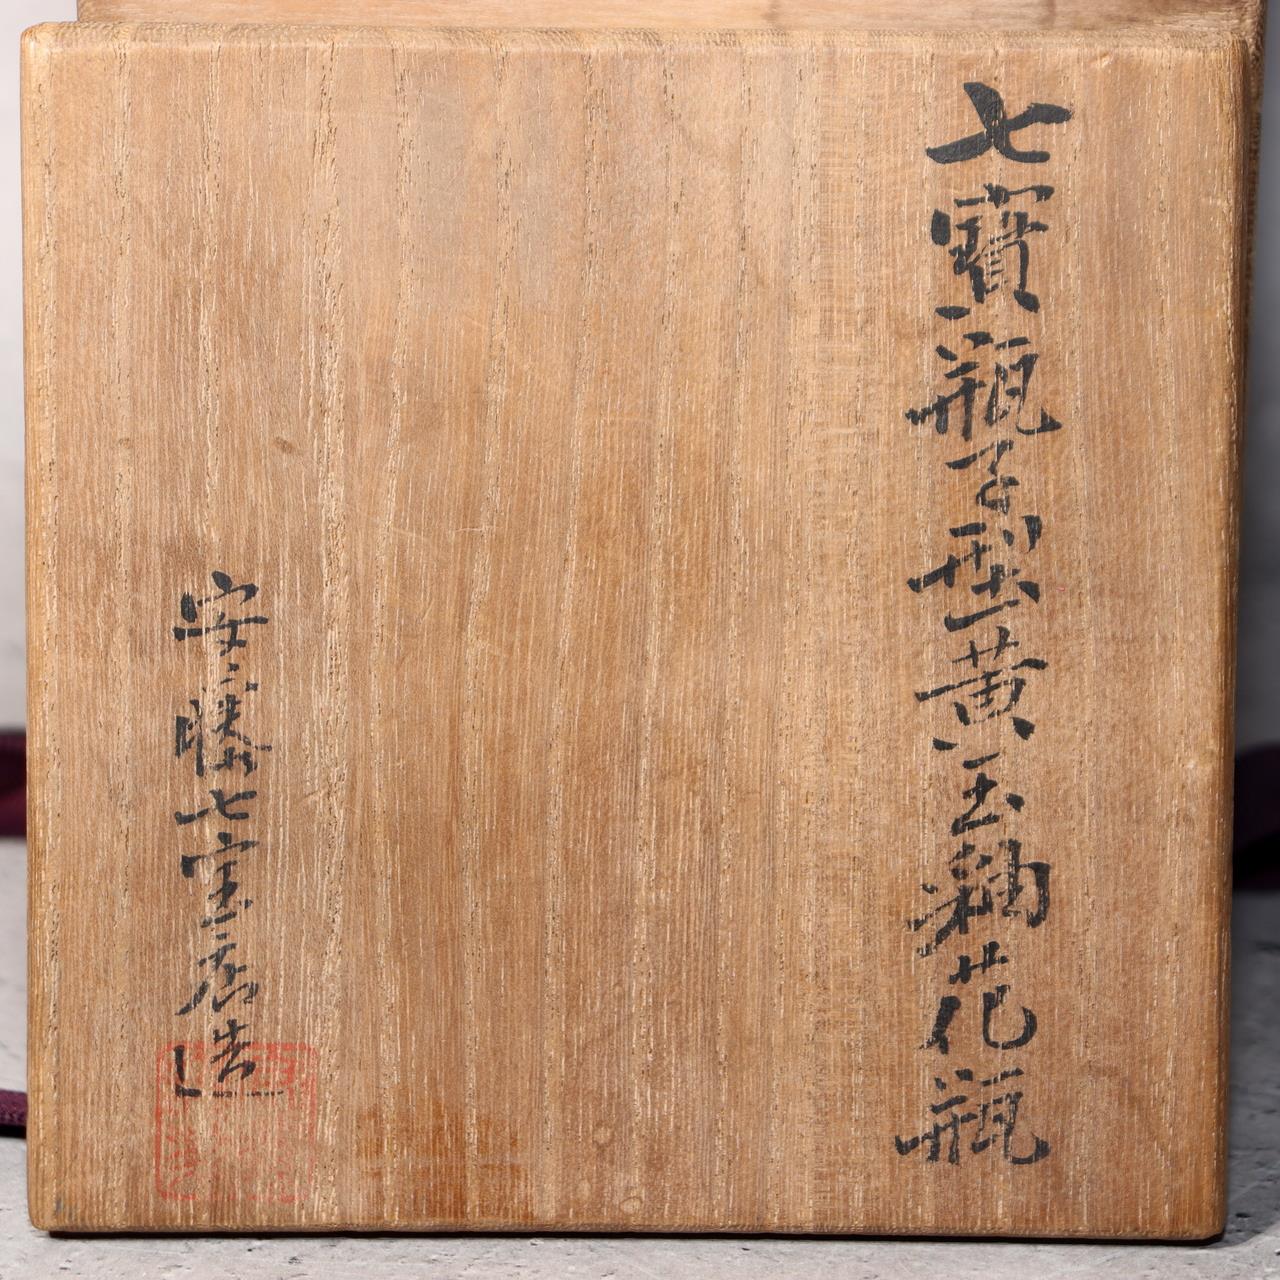 七寳瓶子型黄玉釉花瓶
安藤七宝店造